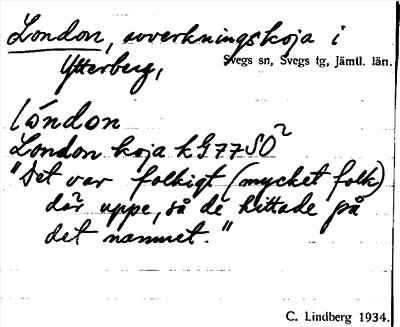 London, avverkningskoja i
Ytterberg,
Svegs sn, Svegs tg, Jämtl. län.
London
London koja kG77SO²
"Det var folkigt (mycket folk)
där uppe, så de hittade på
det namnet."
C. Lindberg 1934.